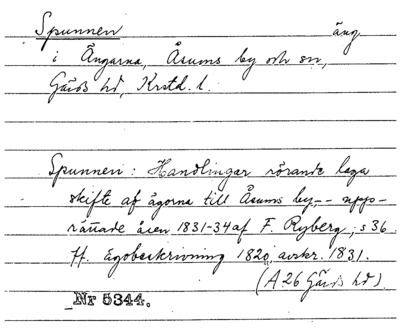 Spunnen äng
i Ängarna, Åsums by och sn,
Gärds hd, Krstd. l.
Spunnen: Handlingar rörande laga
skifte af ägorna till Åsums by,-- upp-
rättade åren 1831-34 af F. Ryberg, s 36
ff. Egobeskrivning 1820, avskr. 1831.
(A 26 Gärds hd).
Nr 5344.